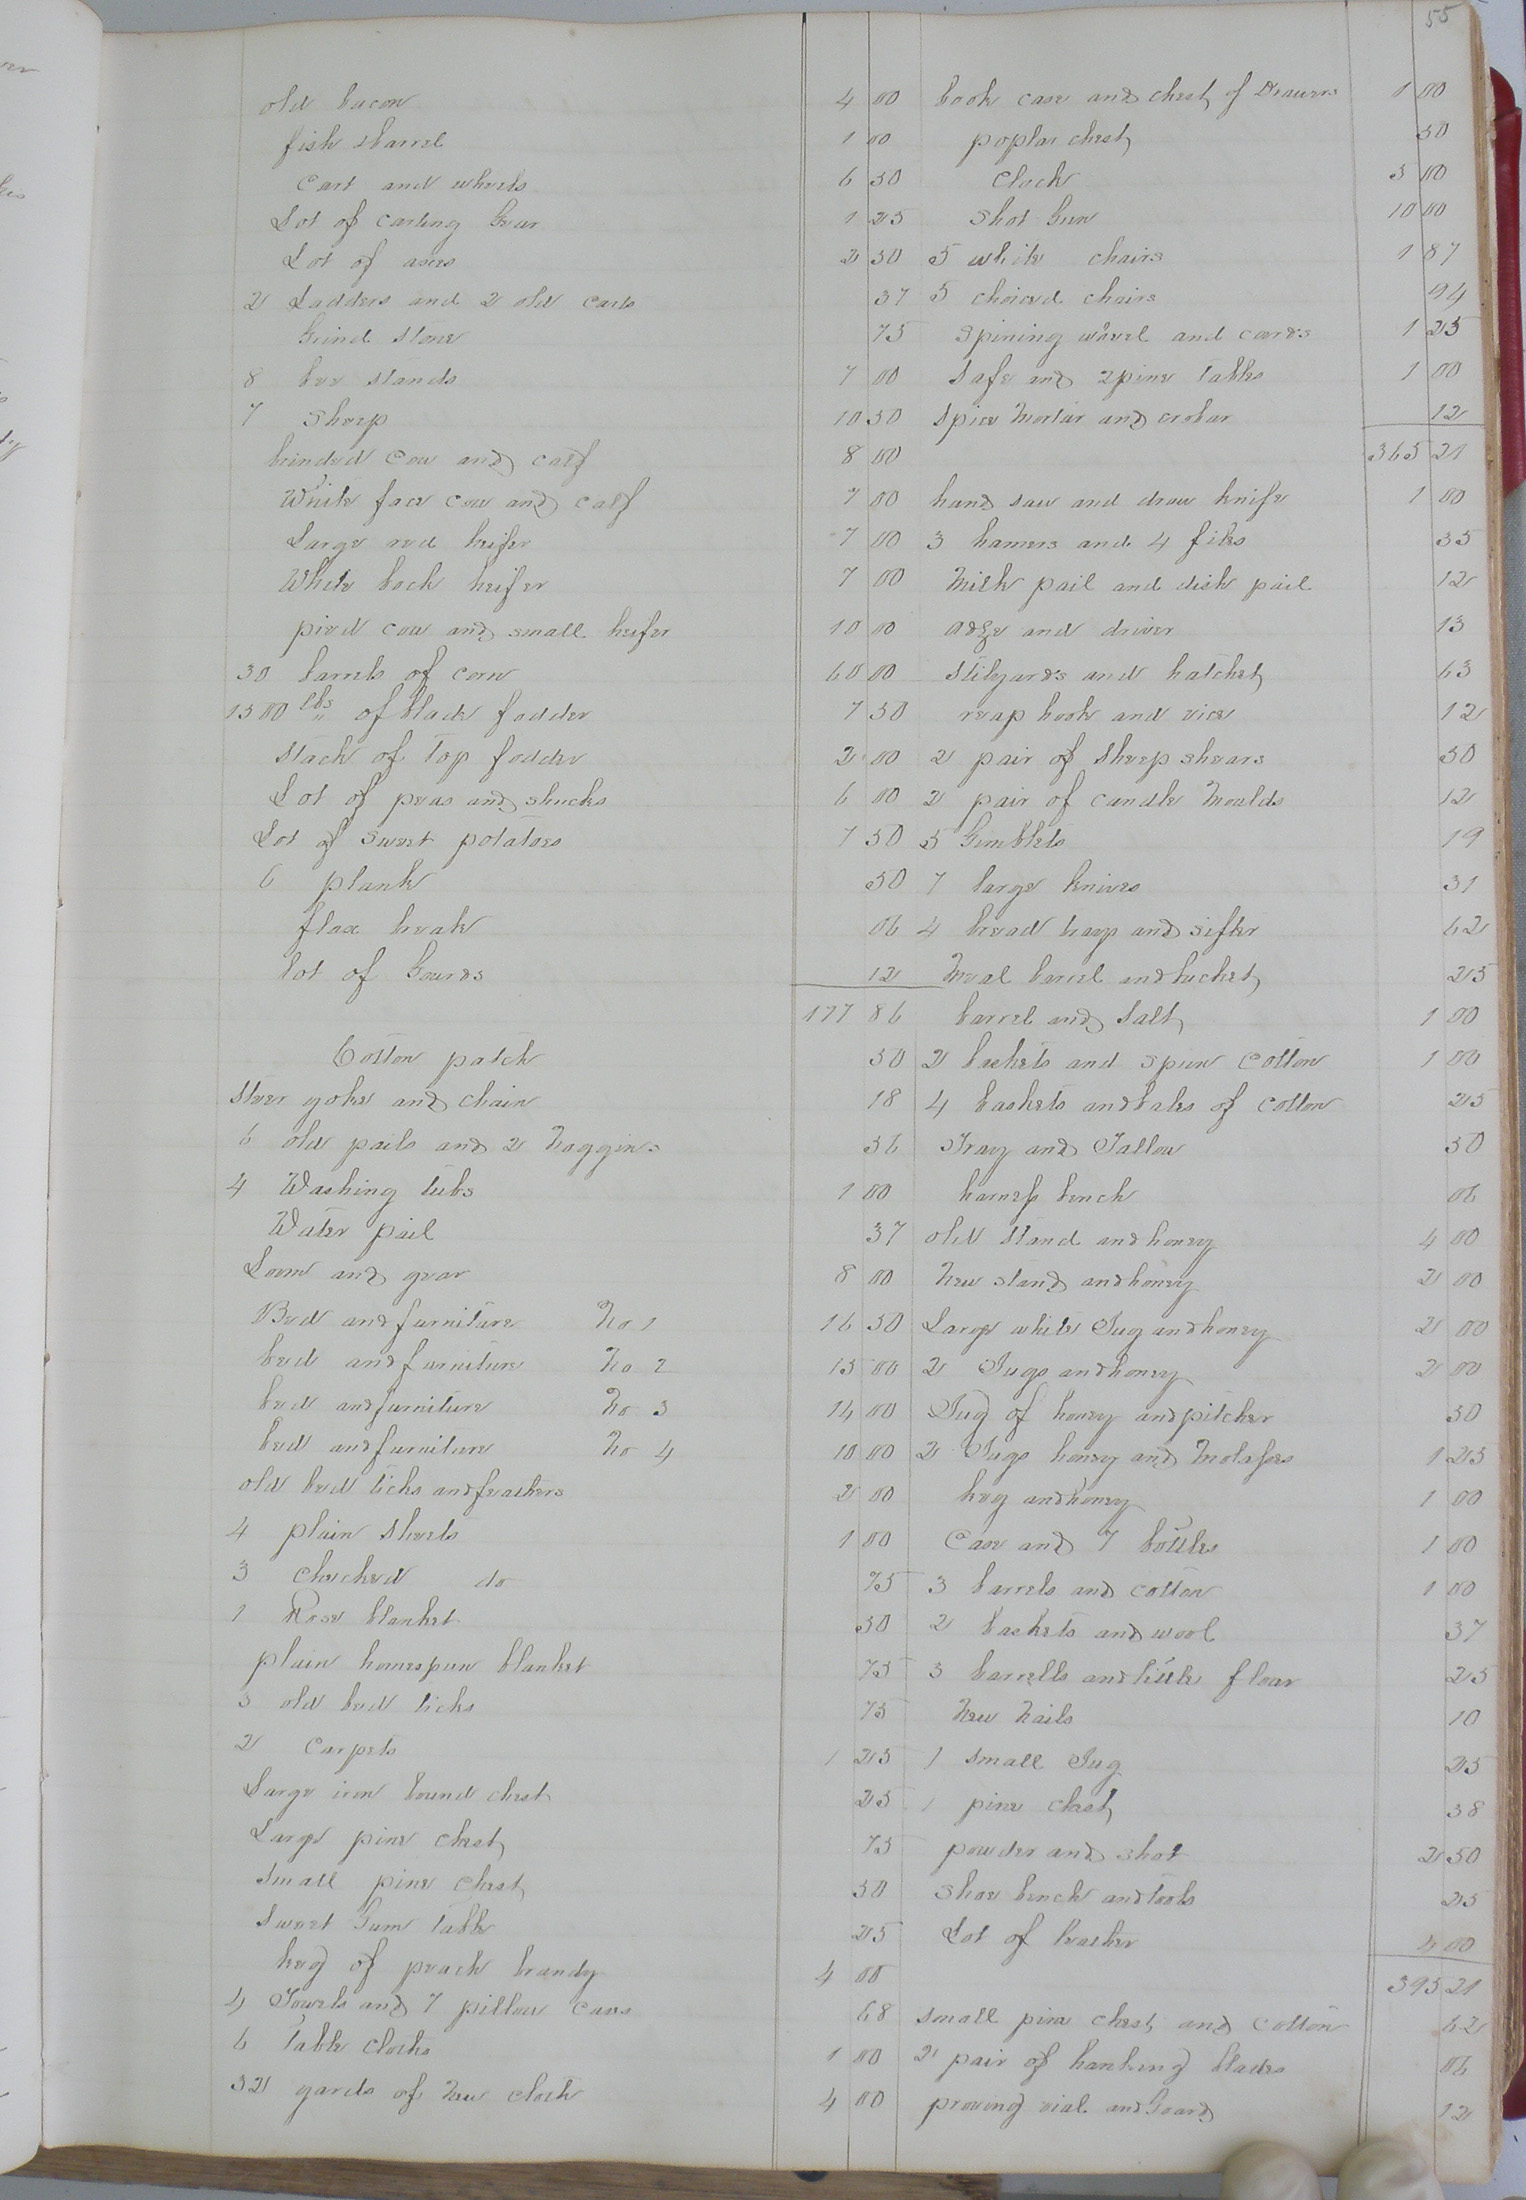 55
old bacon 4 00
fish barrel 1 00
Cart and wheels 6 50
Lot of carting Gear 1 25
Lot of axes 2 50
2 Ladders and 2 old carts 37
Grind stone 75
8 bee stands 7 00
7 Sheep 10 50
brinded Cow and calf 8 00
White face cow and calf 7 00
Large red heifer 7 00
White back heifer 7 00
pied cow and small heifer 10 00
30 barrels of corn 60 00
1500 lbs " of blade fodder 7 50
Stack of top fodder 2 00
Lot of peas and shucks 6 00
Lot of sweet potatoes 7 50
6 plank 50
flax break 06
lot of Gourds 12
177 86
Cotton patch 50
Steer yoke and chain 18
6 old pails and 2 Noggins 36
4 Washing tubs 1 00
Water pail 37
Loom and gear 8 00
Bed and furniture No 1 16 50
bed and furniture No 2 15 00
bed and furniture No 3 14 00
bed and furniture No 4 10 00
old bed ticks and feathers 2 00
4 plain Sheets 1 00
3 checked do 75
1 Rose blanket 50
plain homespun blanket 75
3 old bed ticks 75
2 Carpets 1 25
Large iron bound chest 25
Large pine chest 75
Small pine chest 50
Sweet Gum table 25
keg of peach brandy 4 00
4 Towels and 7 pillow cases 68
6 Table cloths 1 00
32 yards of New cloth 4 00
book case and chest of Drawers 1 00
poplar chest 50
Clock 5 00
Shot Gun 10 00
5 white chairs 1 87
5 choired chairs 94
Spining wheel and cards 1 25
Safe and 2 pine tables 1 00
Spice Mortar and crobar 12
365 21
hand saw and draw knife 1 00
3 hamers and 4 files 35
Milk pail and dish pail 12
adze and driver 13
Stilyards and hatchet 63
reap hook and vice 12
2 pair of Sheep shears 50
2 pair of candle Moulds 12
5 Gimblets 19
7 large knives 31
4 bread trays and sifter 62
Meal barrel and bucket 25
barrel and Salt 1 00
2 baskets and spun cotton 1 00
4 baskets and bales of cotton 25
Tray and Tallow 50
harness bench 06
old stand and honey 4 00
New stand and honey 2 00
Large white Jug and honey 2 00
2 Jugs and honey 2 00
Jug of honey and pitcher 50
2 Jugs honey and Molasses 1 25
keg and honey 1 00
Case and 7 bottles 1 00
3 barrels and cotton 1 00
2 baskets and wool 37
3 barrells and little flour 25
New Nails 10
1 small Jug 25
1 pine chest 38
powder and shot 2 50
Shoe bench and tools 25
Lot of leather 4 00
395 21
small pine chest and cotton 62
2 pair of hanking blades 06
proving vial and Gourd 12